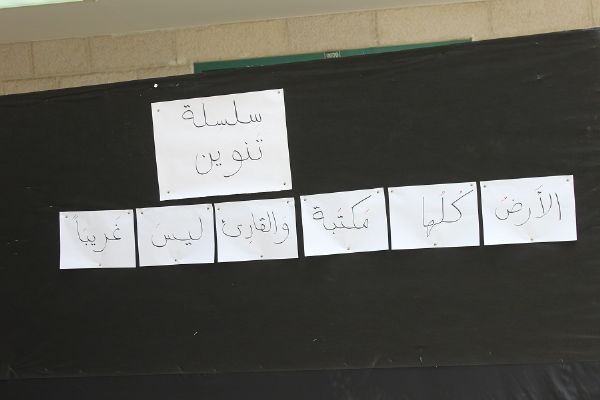 سلسلة
تنوين
الأرضُ كُلُها مَكتَبة والقارِئ ليسَ غَريباً